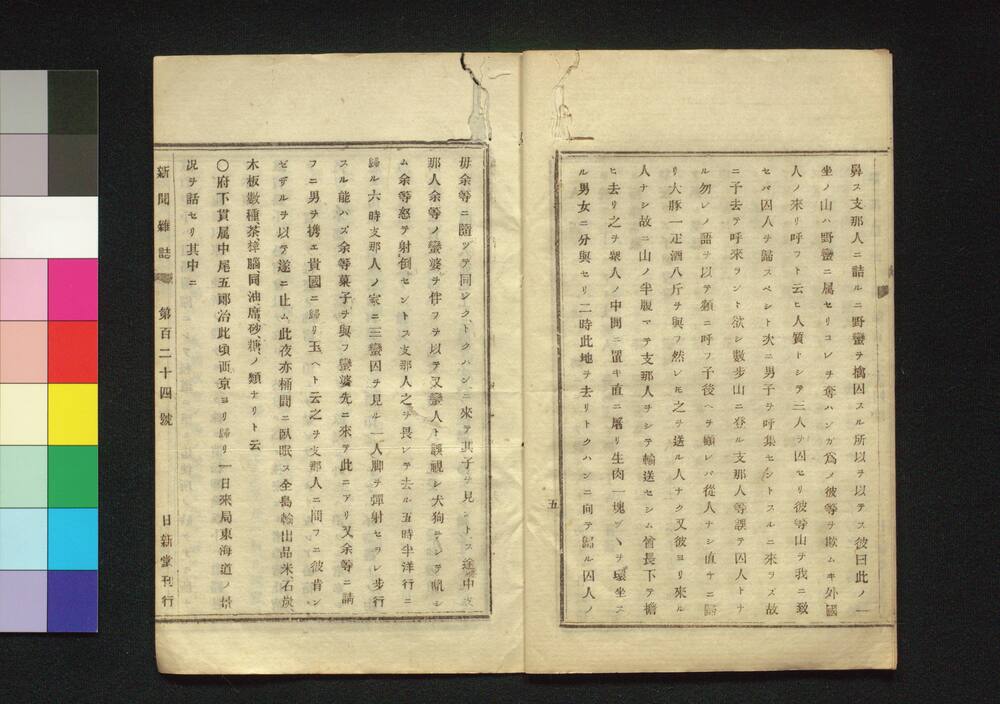 鼻ス支那人ニ詰ルニ野蠻ヲ擒囚スル所以ヲ以テス彼曰此ノ一
坐ノ山ハ野蠻ニ属セリコレヲ奪ハンガ爲ノ彼等ヲ欺ムキ外國
人ノ來リ呼フト云ヒ人質トシテ三人ヲ囚セリ彼等山ヲ我ニ致
セバ囚人ヲ歸スベシト次ニ男子ヲ呼集セントスルニ來ヲズ故
ニ予去テ呼來ヲント欲シ數歩山ニ登ル支那人等誤テ囚人トナ
ル勿レノ語ヲ以テ頻ニ呼フ予後ヘヲ顧レバ從人ナシ直ヤニ歸
リ大豚一疋酒八斤ヲ與フ然レ𪜈之ヲ送ル人ナク又彼ヨリ來ル
人ナシ故ニ山ノ半腹マテ支那人ヲシテ輸送セシム酋長下テ擔
ヒ去リ之ヲ衆人ノ中間ニ置キ直ニ屠リ生肉一塊ヅヽヲ環坐ス
ル男女ニ分與セリ二時此地ヲ去リトクハンニ向テ歸ル囚人ノ
五
毋余等ニ隨ヅテ同シクトクハンニ來テ其子ヲ見ントス途中支
那人余等ノ蠻婆ヲ伴フヲ以テ又蠻人ト誤視シ犬狗ヲシテ吼シ
ム余等怒テ射倒セントス支那人之ヲ畏レテ去ル五時半洋行ニ
歸ル六時支那人ノ家ニ三蠻囚ヲ見ル一人脚ヲ彈射セヲレ歩行
スル能ハズ余等菓子ヲ與フ蠻婆先ニ來テ此ニアリ又余等ニ請
フニ男ヲ携エ貴國ニ歸リ玉ヘト云之ヲ支那人ニ問フニ彼肯ン
ゼザルヲ以テ遂ニ止ム此夜亦桶間ニ臥眠ス全島輸出品米石炭
木板數種茶樟腦同油席砂糖ノ類ナリト云
〇府下貫属中尾五郎冶此頃西京ヨリ歸リ一日來局東海道ノ景
况ヲ話セリ其中ニ
新聞雜誌 第百二十四號 日新堂刊行